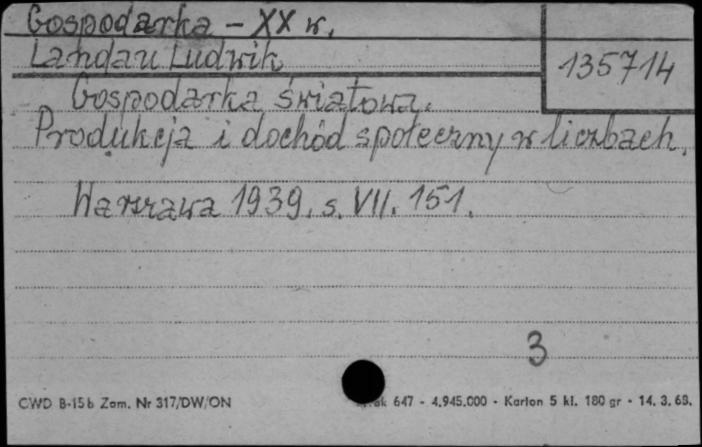 Gospodarka - XX w.
Landau Ludwik
135714
Gospodarka światowa.
Produkcja i dochód społeczny w liczbach.
Warszawa 1939. s. VII. 151.
3
CWD B-15b Zam. Nr 317/DW/ON 647 - 4.945.000 - Karton 5 kl. 180 gr - 14. 3. 68.